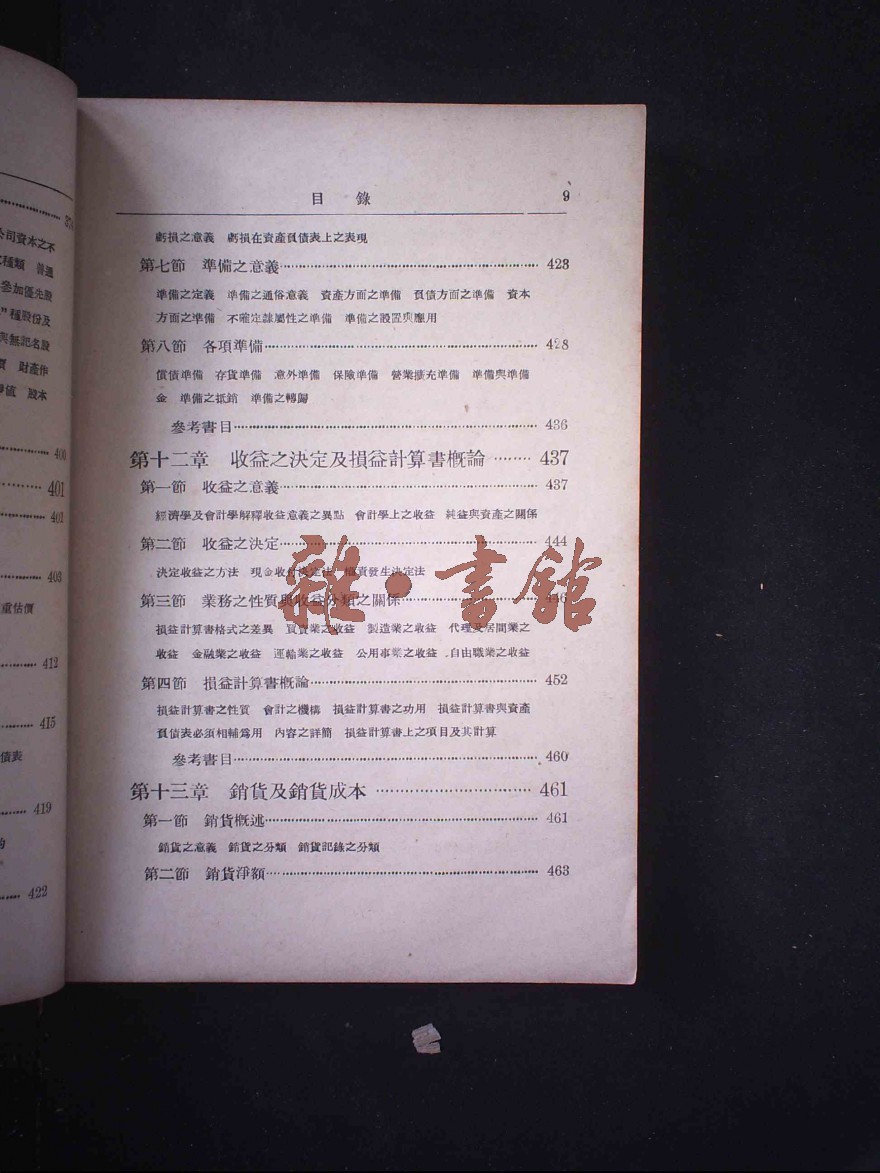 400
401
401
403
重估價
412
415
債表
419
422
公司資本之不
種類 普通
參加優先股
種股份及
與無記名股
財產作
股本
目錄 9
虧損之意義 虧損在資產負債表上之表現
第七節 準備之意義 423
準備之定義 準備之通俗意義 資產方面之準備 負債方面之準備 資本
方面之準備 不確定隸屬性之準備 準備之設置與應用
第八節 各項準備 428
償債準備 存貨準備 意外準備 保險準備 營業擴充準備 準備與準備
金 準備之抵銷 準備之轉歸
參考書目 436
第十二章 收益之決定及損益計算書概論 437
第一節 收益之意義 437
經濟學及會計學解釋收益意義之異點 會計學上之收益 純益與資產之關係
第二節 收益之決定 444
決定收益之方法 現金收付決定法 發生決定法
第三節 業務之性質與收益分類之關係
損益計算書格式之差異 買賣業之收益 製造業之收益 代理及居間業之
收益 金融業之收益 運輸業之收益 公用事業之收益 自由職業之收益
第四節 損益計算書概論 452
損益計算書之性質 會計之機構 損益計算書之功用 損益計算書與資產
負債表必須相輔爲用 內容之詳簡 損益計算書上之項目及其計算
參考書目 460
第十三章 銷貨及銷貨成本 461
第一節 銷貨概述 461
銷貨之意義 銷貨之分類 銷貨記錄之分類
第二節 銷貨淨額 463
雜·書館